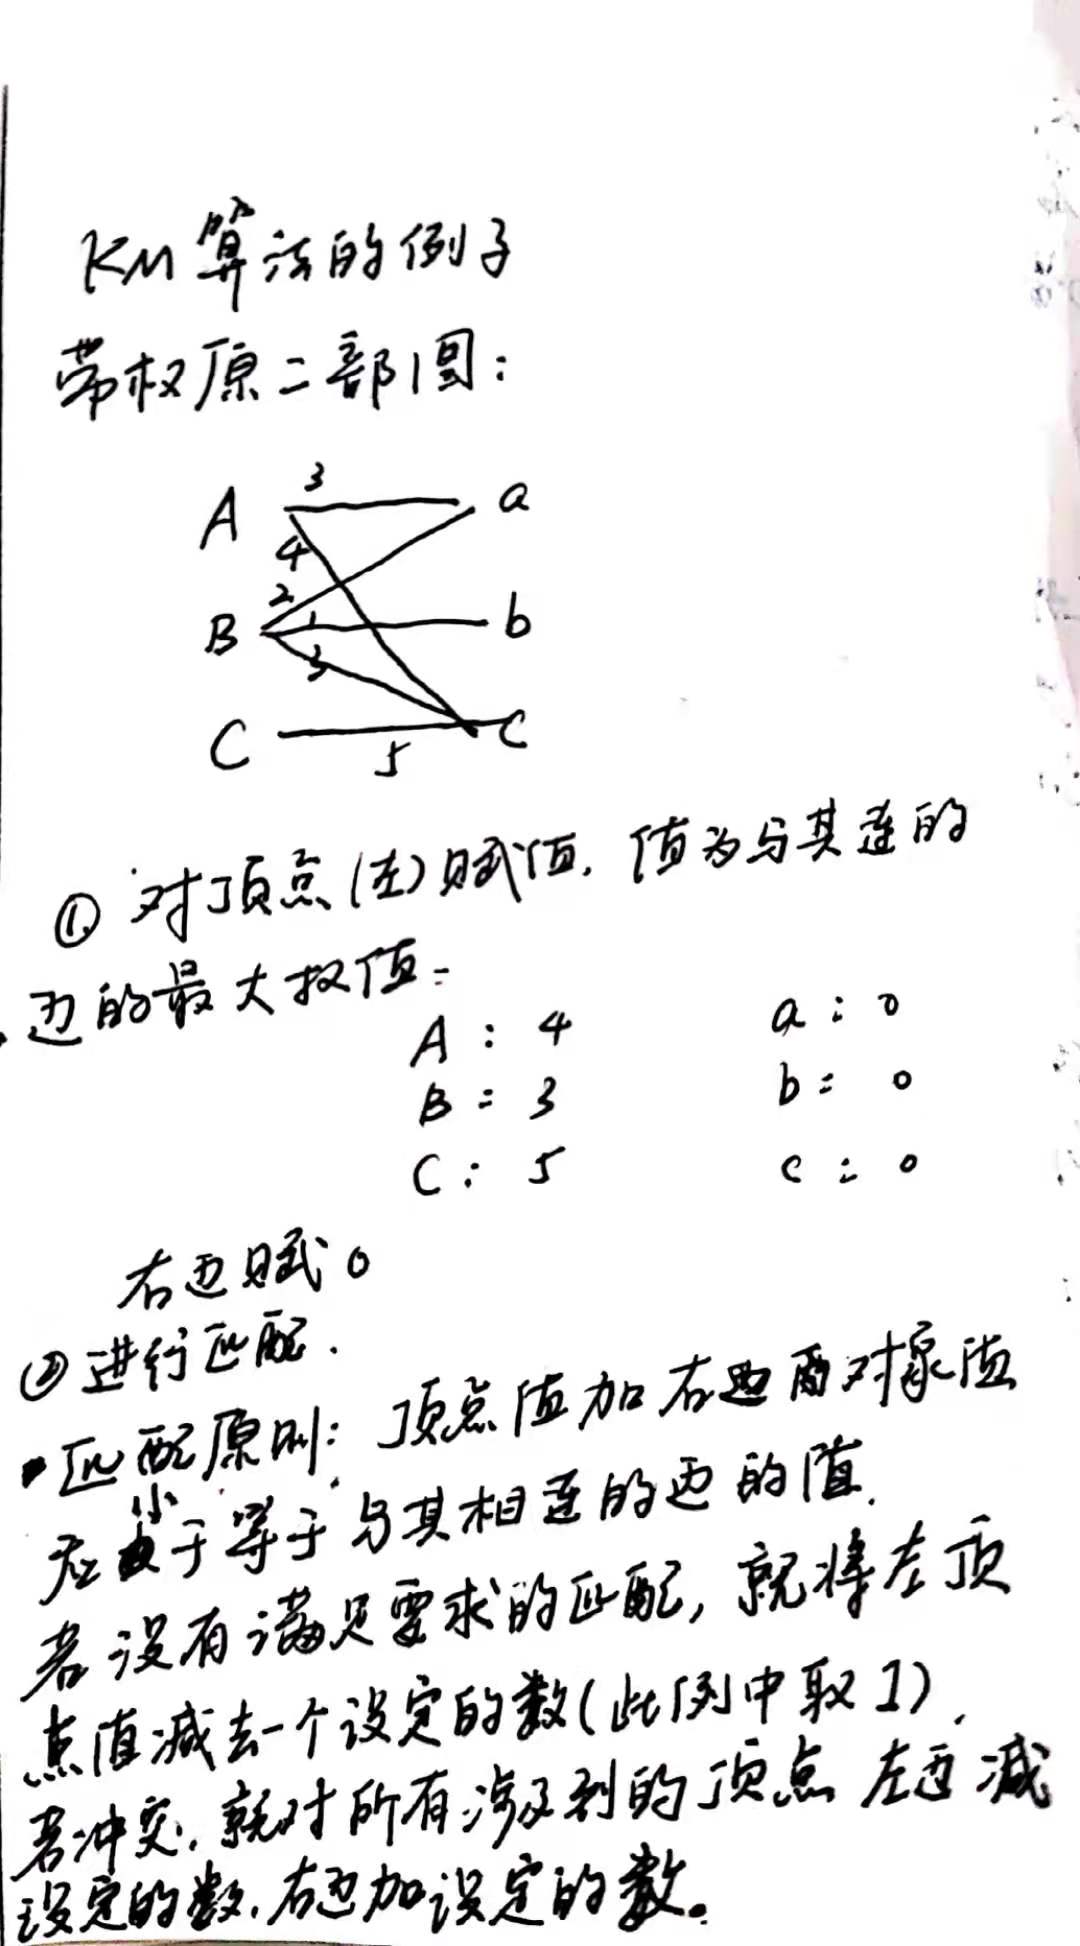 KM算法的例子
带权原二部图:
A 3 a
4
B 2 1 b
3
C 5 C
① 对顶点(左)赋值, 值为与其连的
边的最大权值:
A : 4 a : 0
B : 3 b : 0
C : 5 c : 0
右边赋0
②进行匹配.
·匹配原则: 顶点值加右边配对象值
应小于等于与其相连的边的值.
若没有满足要求的匹配, 就将左顶
点值减去一个设定的数(此例中取1).
若冲突, 就对所有涉及到的顶点 左边减
设定的数, 右边加设定的数。